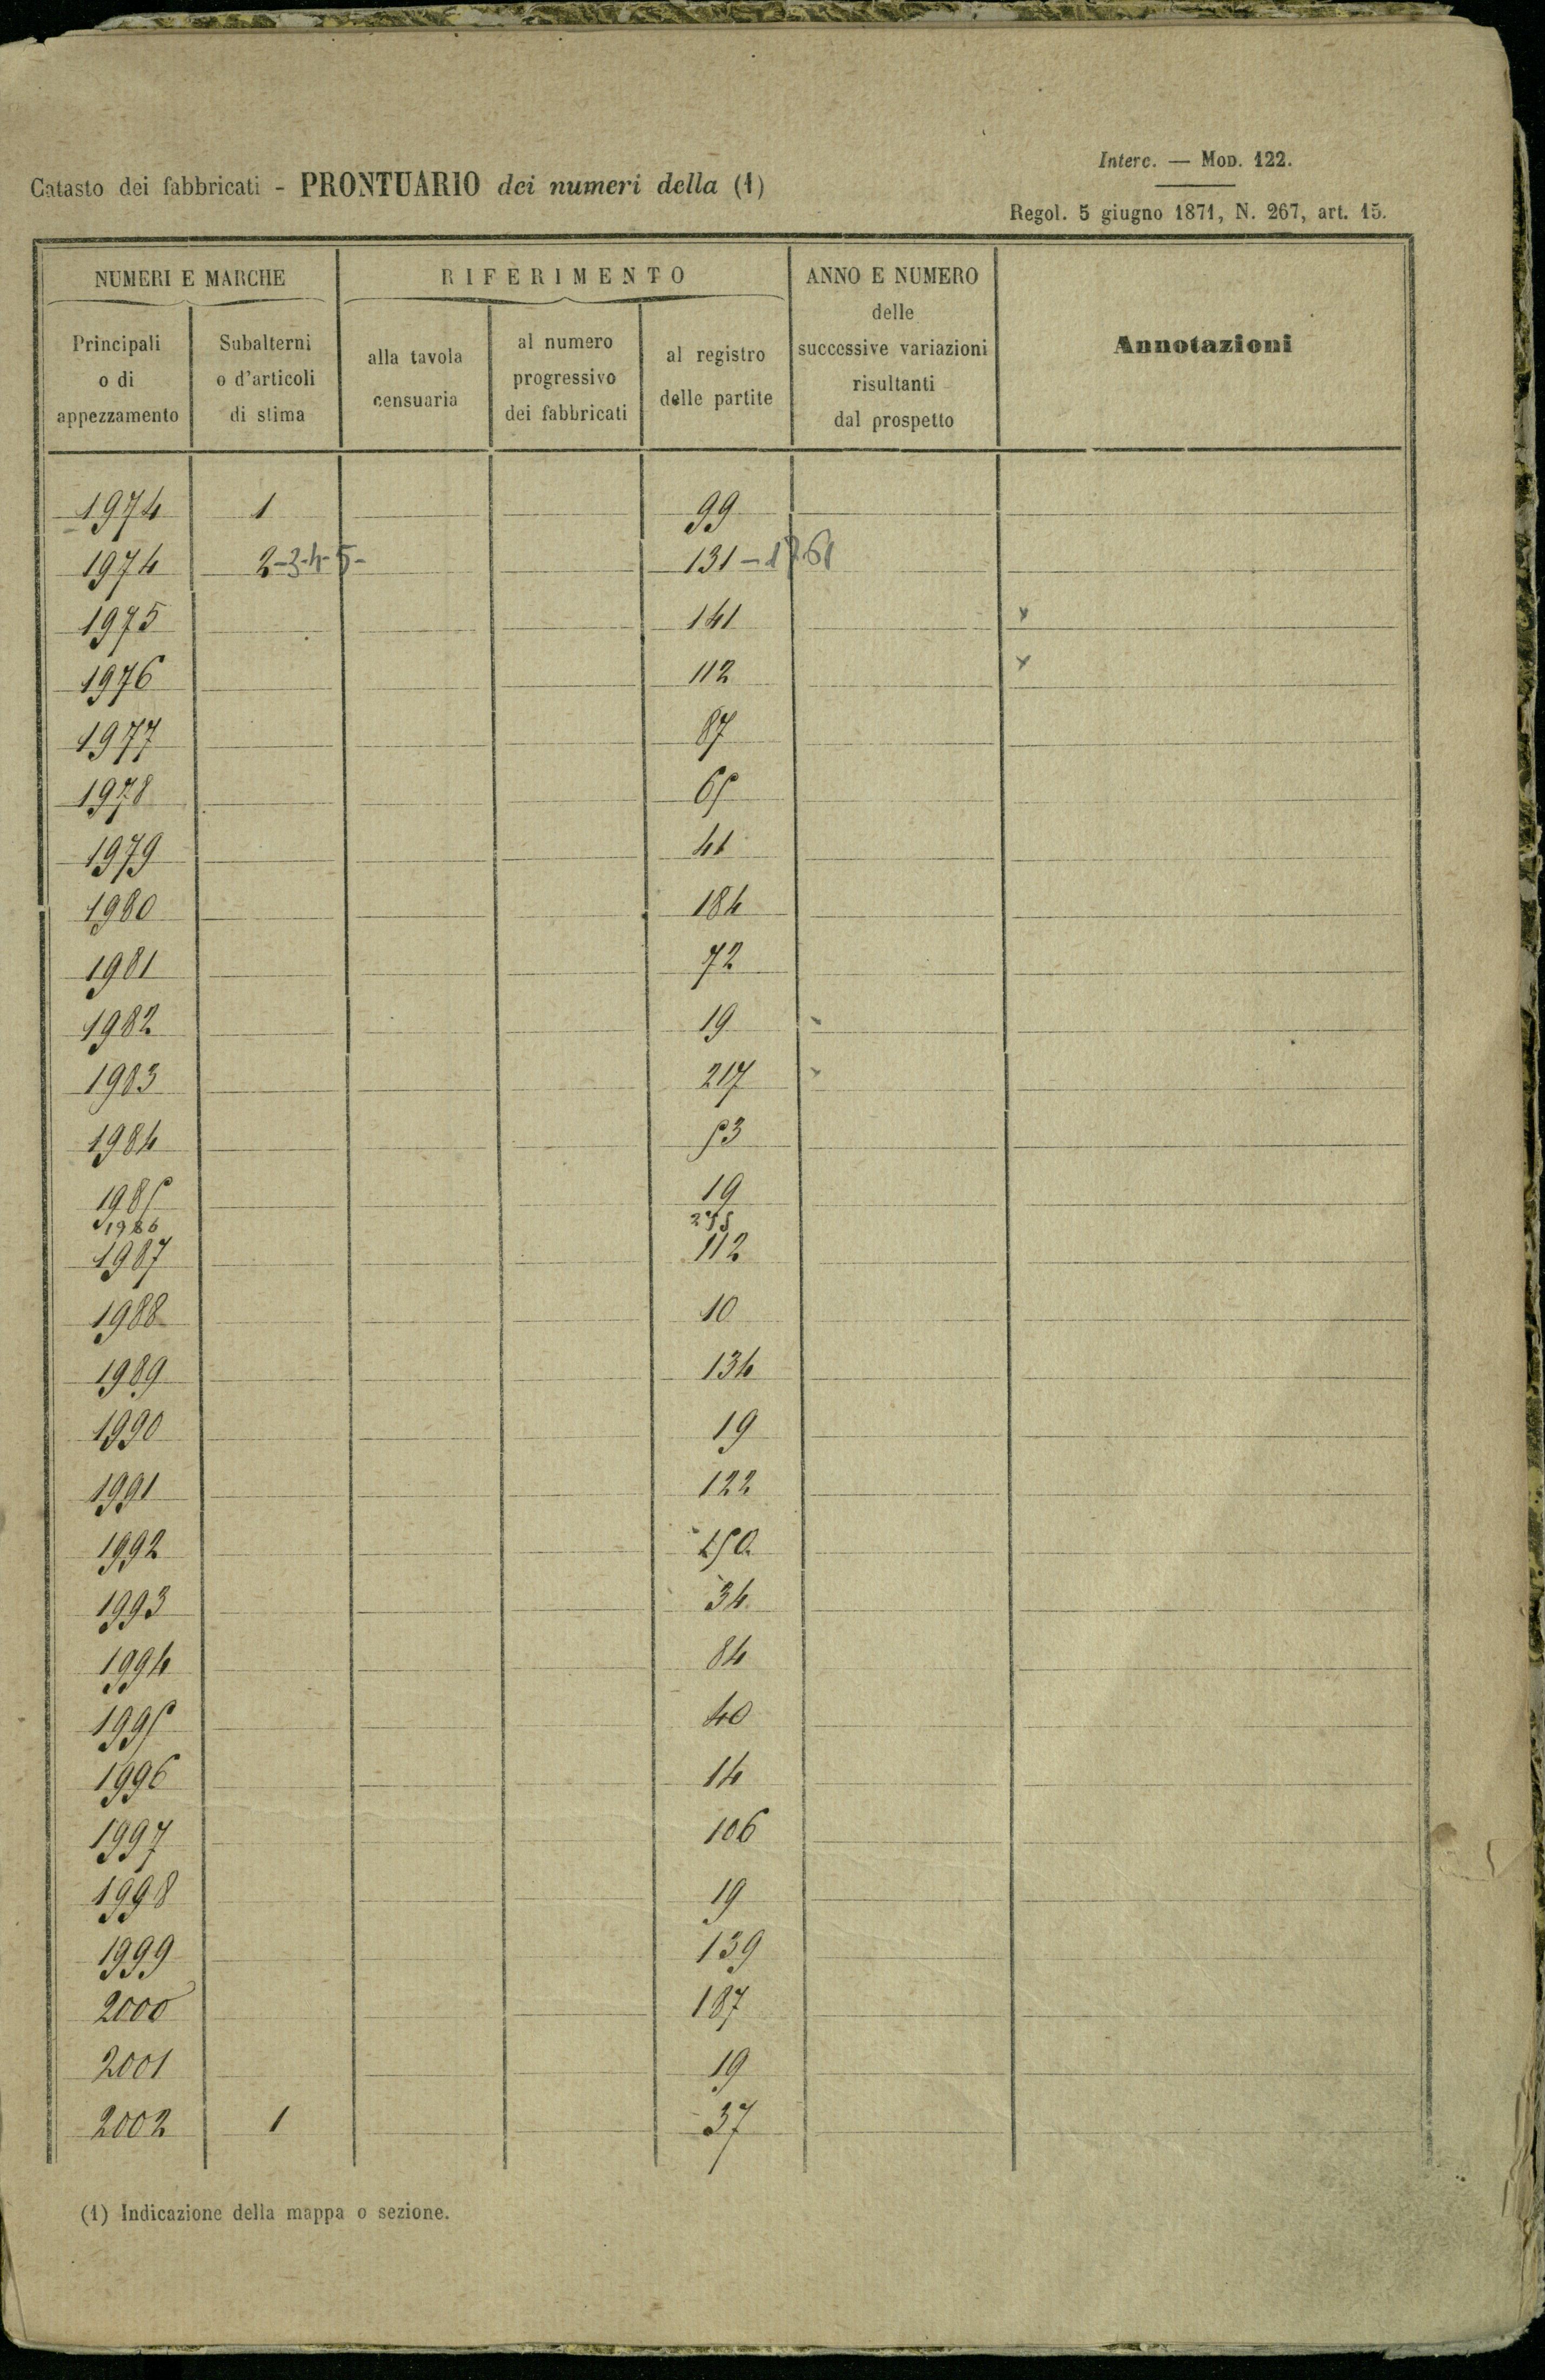 Interc. — Mod. 122.
Catasto dei fabbricati - PRONTUARIO dei numeri della (1)
Regol. 5 giugno 1871, N. 267, art. 15.
NUMERI E MARCHE RIFERIMENTO ANNO E NUMERO delle successive variazioni risultanti dal prospetto Annotazioni
Principali o di appezzamento Subalterni o d'articoli di stima alla tavola censuaria al numero progressivo dei fabbricati al registro delle partite
1974 1 99
1974 2-3-4-5- 131-1761
1975 141 x
1976 112 x
1977 87
1978 65
1979 41
1980 184
1981 72
1982 19
1983 217
1984 53
1985 19
1986 255
1987 112
1988 10
1989 134
1990 19
1991 122
1992 150
1993 34
1994 84
1995 40
1996 14
1997 106
1998 19
1999 139
2000 187
2001 19
2002 1 37
(1) Indicazione della mappa o sezione.